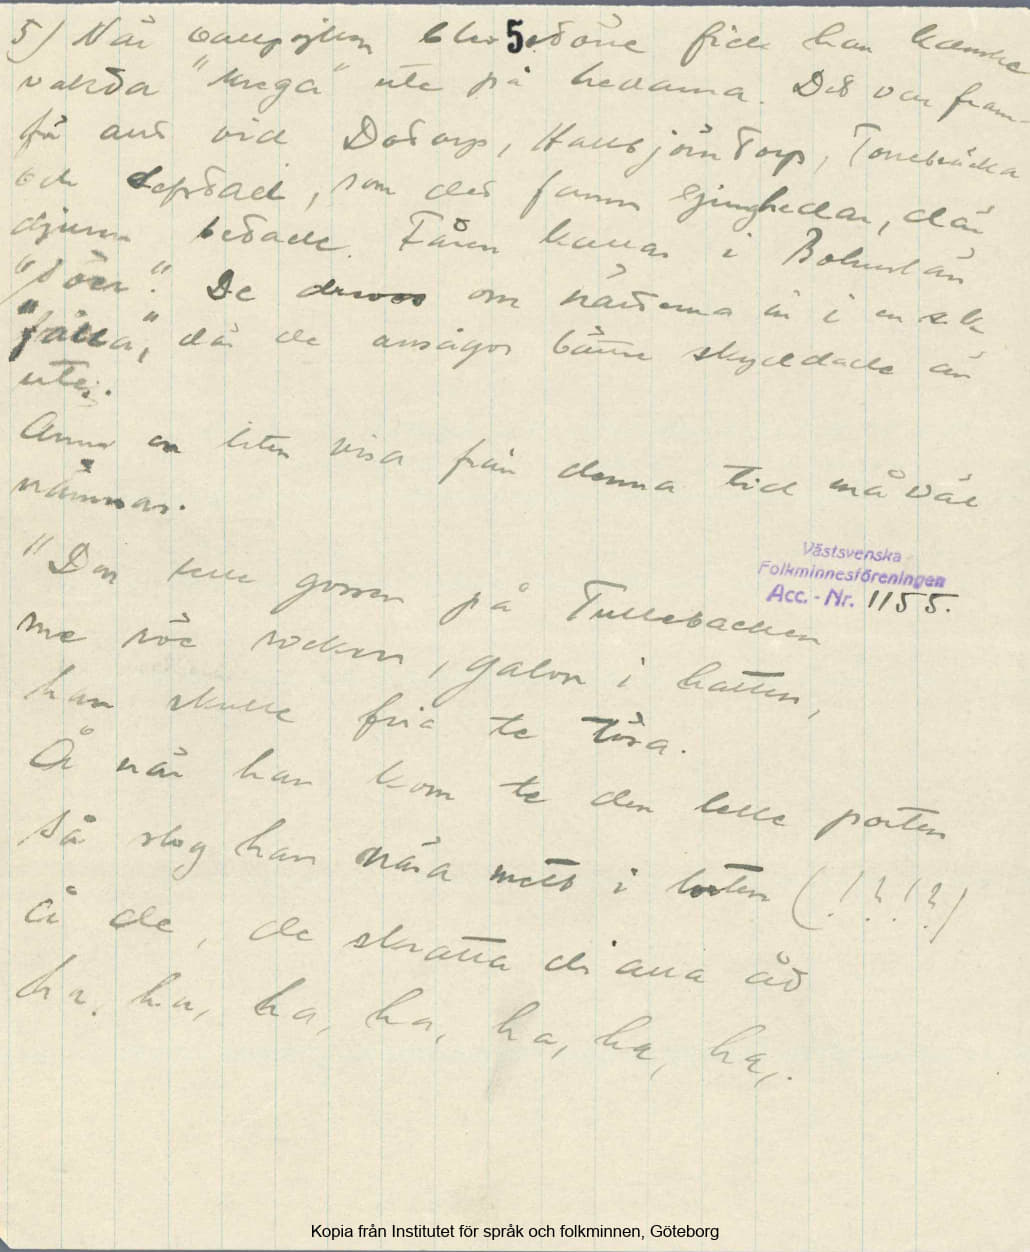 5) När vallpojken blev 5 större fick han kanske
vakta "krega" ute på hedarna. Det var fram-
för allt vid Dotorp, Hallbjörntorp, Tonebräcka
och Lefstad, som det fanns ljunghedar, där
djuren betade. Fåren kallas i Bohuslän
"söer". De drevos om nätterna in i en s.k.
"fålla", där de ansågos bättre skyddade än
ute.
Ännu en liten visa från denna tid må väl
nämnas.
"Den lelle gossen på Tullebacken
Västsvenska
Folkminnesföreningen
Acc. - Nr. 1155.
me röe rocken, galon i hatten,
han skulle fria te tösa.
Å när han kom te den lelle porten
så slog han nära mett i lorten (!?!?)
å de, de skratta di alla åt
ha, ha, ha, ha, ha, ha, ha,.
Kopia från Institutet för språk och folkminnen, Göteborg